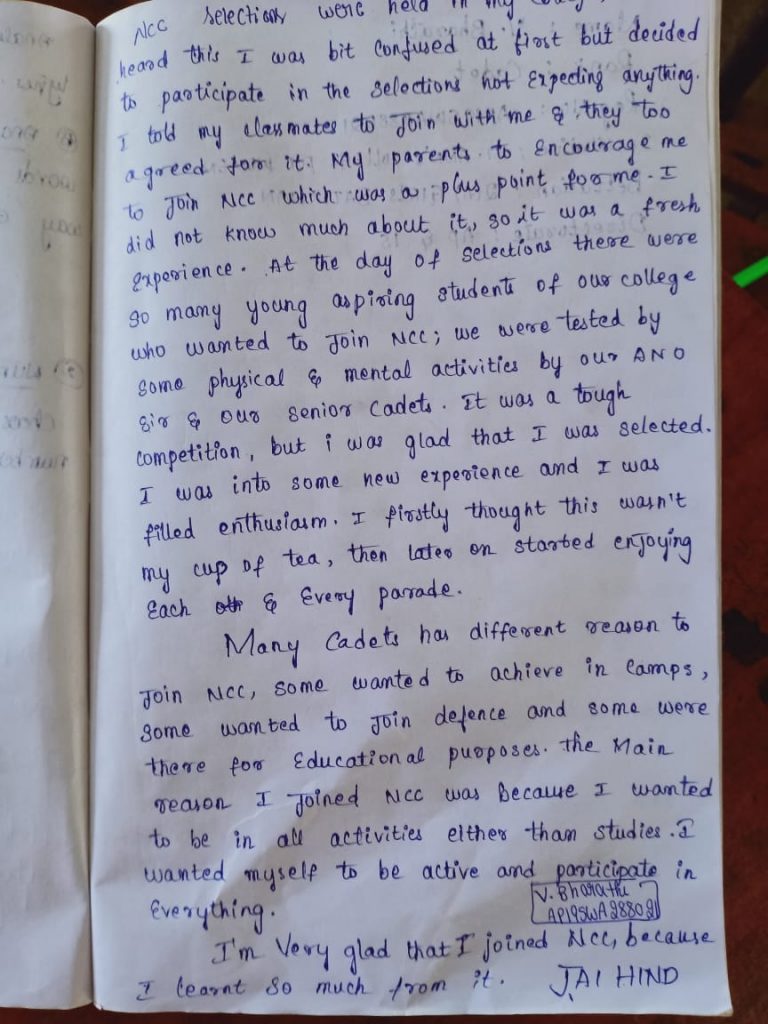 NCC selections were held in my
heard this I was bit confused at first but decided
to participate in the selections not Expecting anything.
I told my classmates to Join with me & they too
agreed for it. My parents to Encourage me
to Join NCC which was a plus point for me. I
did not know much about it, so it was a fresh
Experience. At the day of selections there were
so many young aspiring students of our college
who wanted to Join NCC; we were tested by
some physical & mental activities by our ANO
Sir & our senior Cadets. It was a tough
competition, but i was glad that I was selected.
I was into some new experience and I was
filled enthusiasm. I firstly thought this wasn't
my cup of tea, then later on started enjoying
Each & Every parade.
Many Cadets has different reason to
Join NCC, some wanted to achieve in Camps,
some wanted to Join defence and some were
there for Educational purposes. the Main
reason I Joined NCC was because I wanted
to be in all activities either than studies. I
wanted myself to be active and participate in
Everything.
V. Bharathi
AP19SWA288021
I'm Very glad that I joined NCC, because
I learnt so much from it. JAI HIND